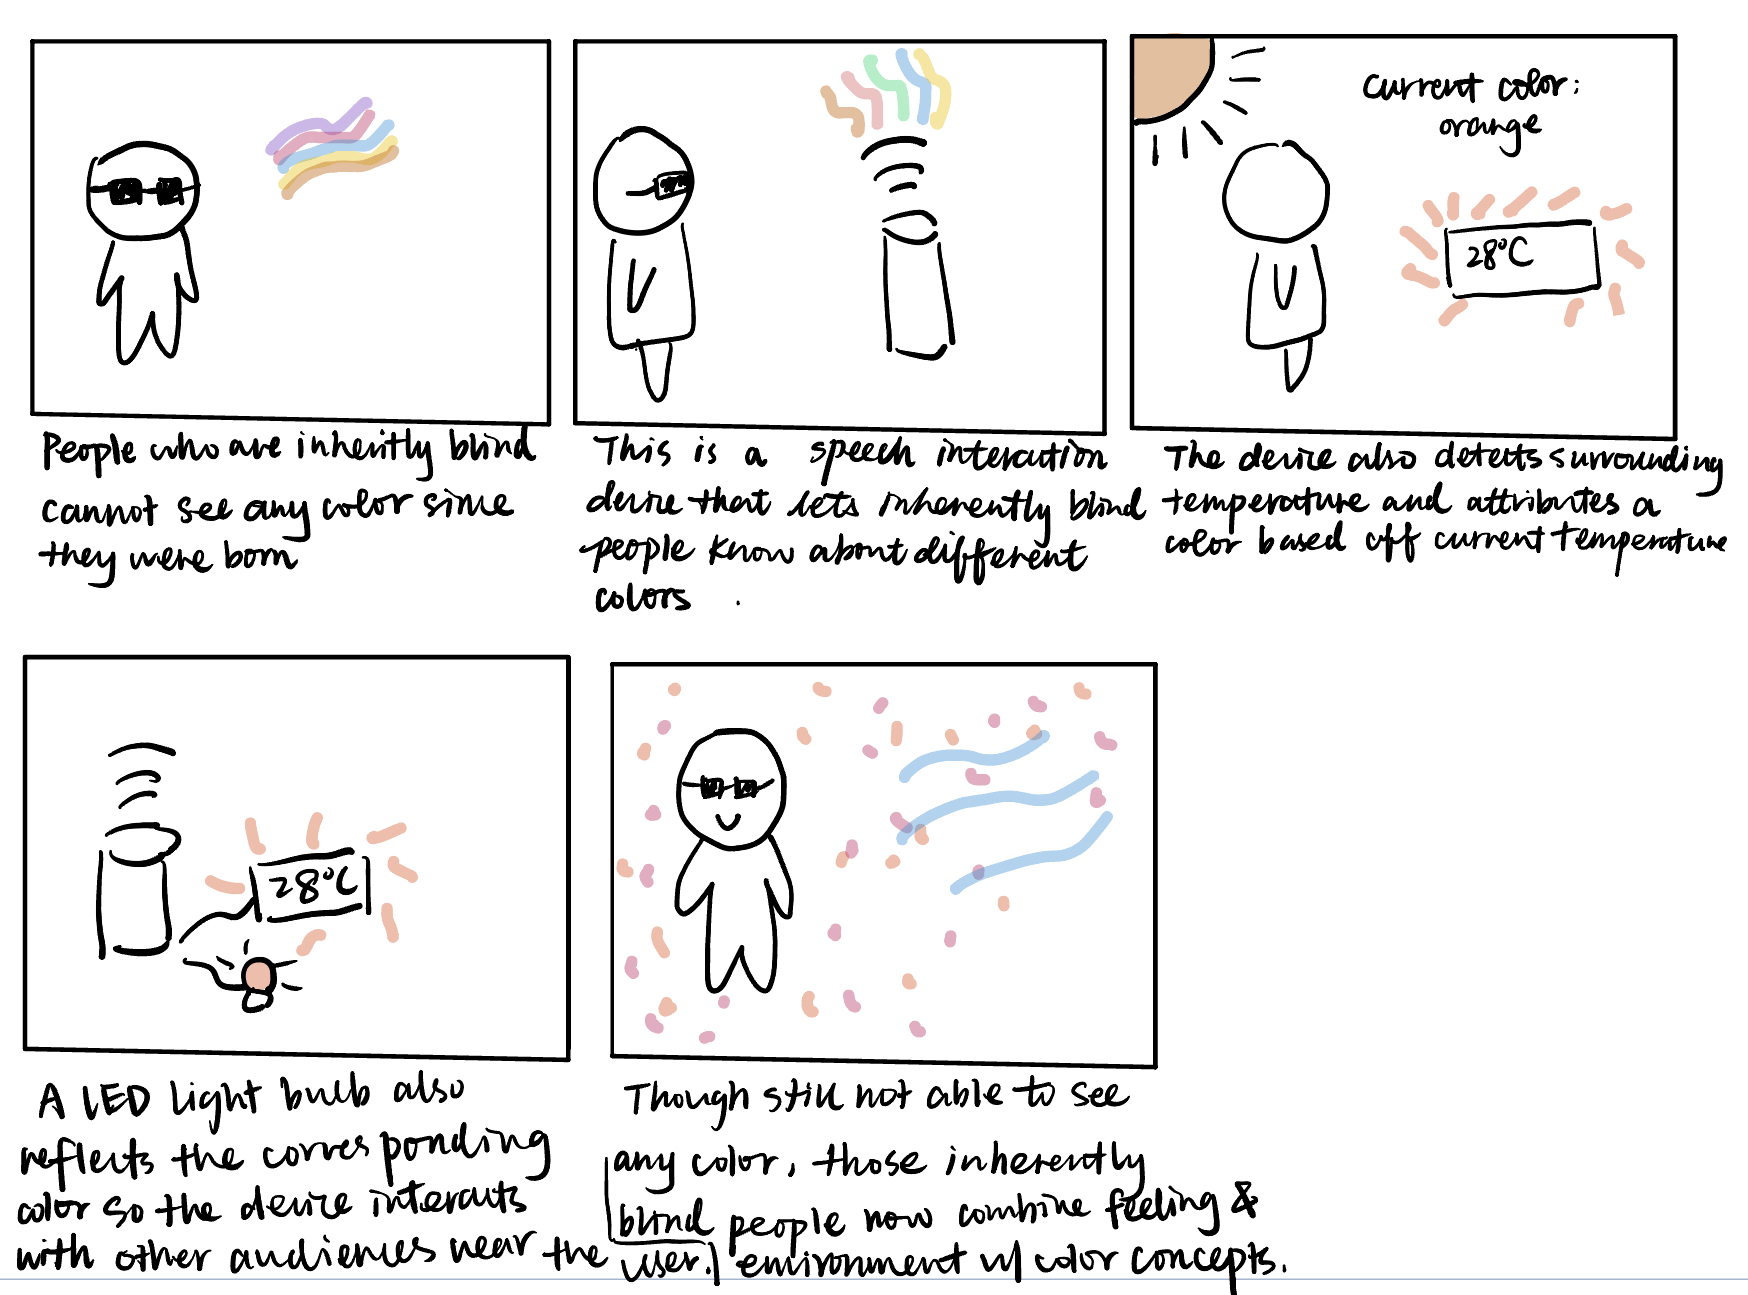 People who are inheritly blind
cannot see any color since
they were born
This is a speech interaction
device that lets inherently blind
people know about different
colors.
Current color:
orange
28°C
The device also detects surrounding
temperature and attributes a
color based off current temperature
28°C
A LED light bulb also
reflects the corresponding
color so the device interacts
with other audiences near the
user.
Though still not able to see
any color, those inherently
blind people now combine feeling &
environment w/ color concepts.